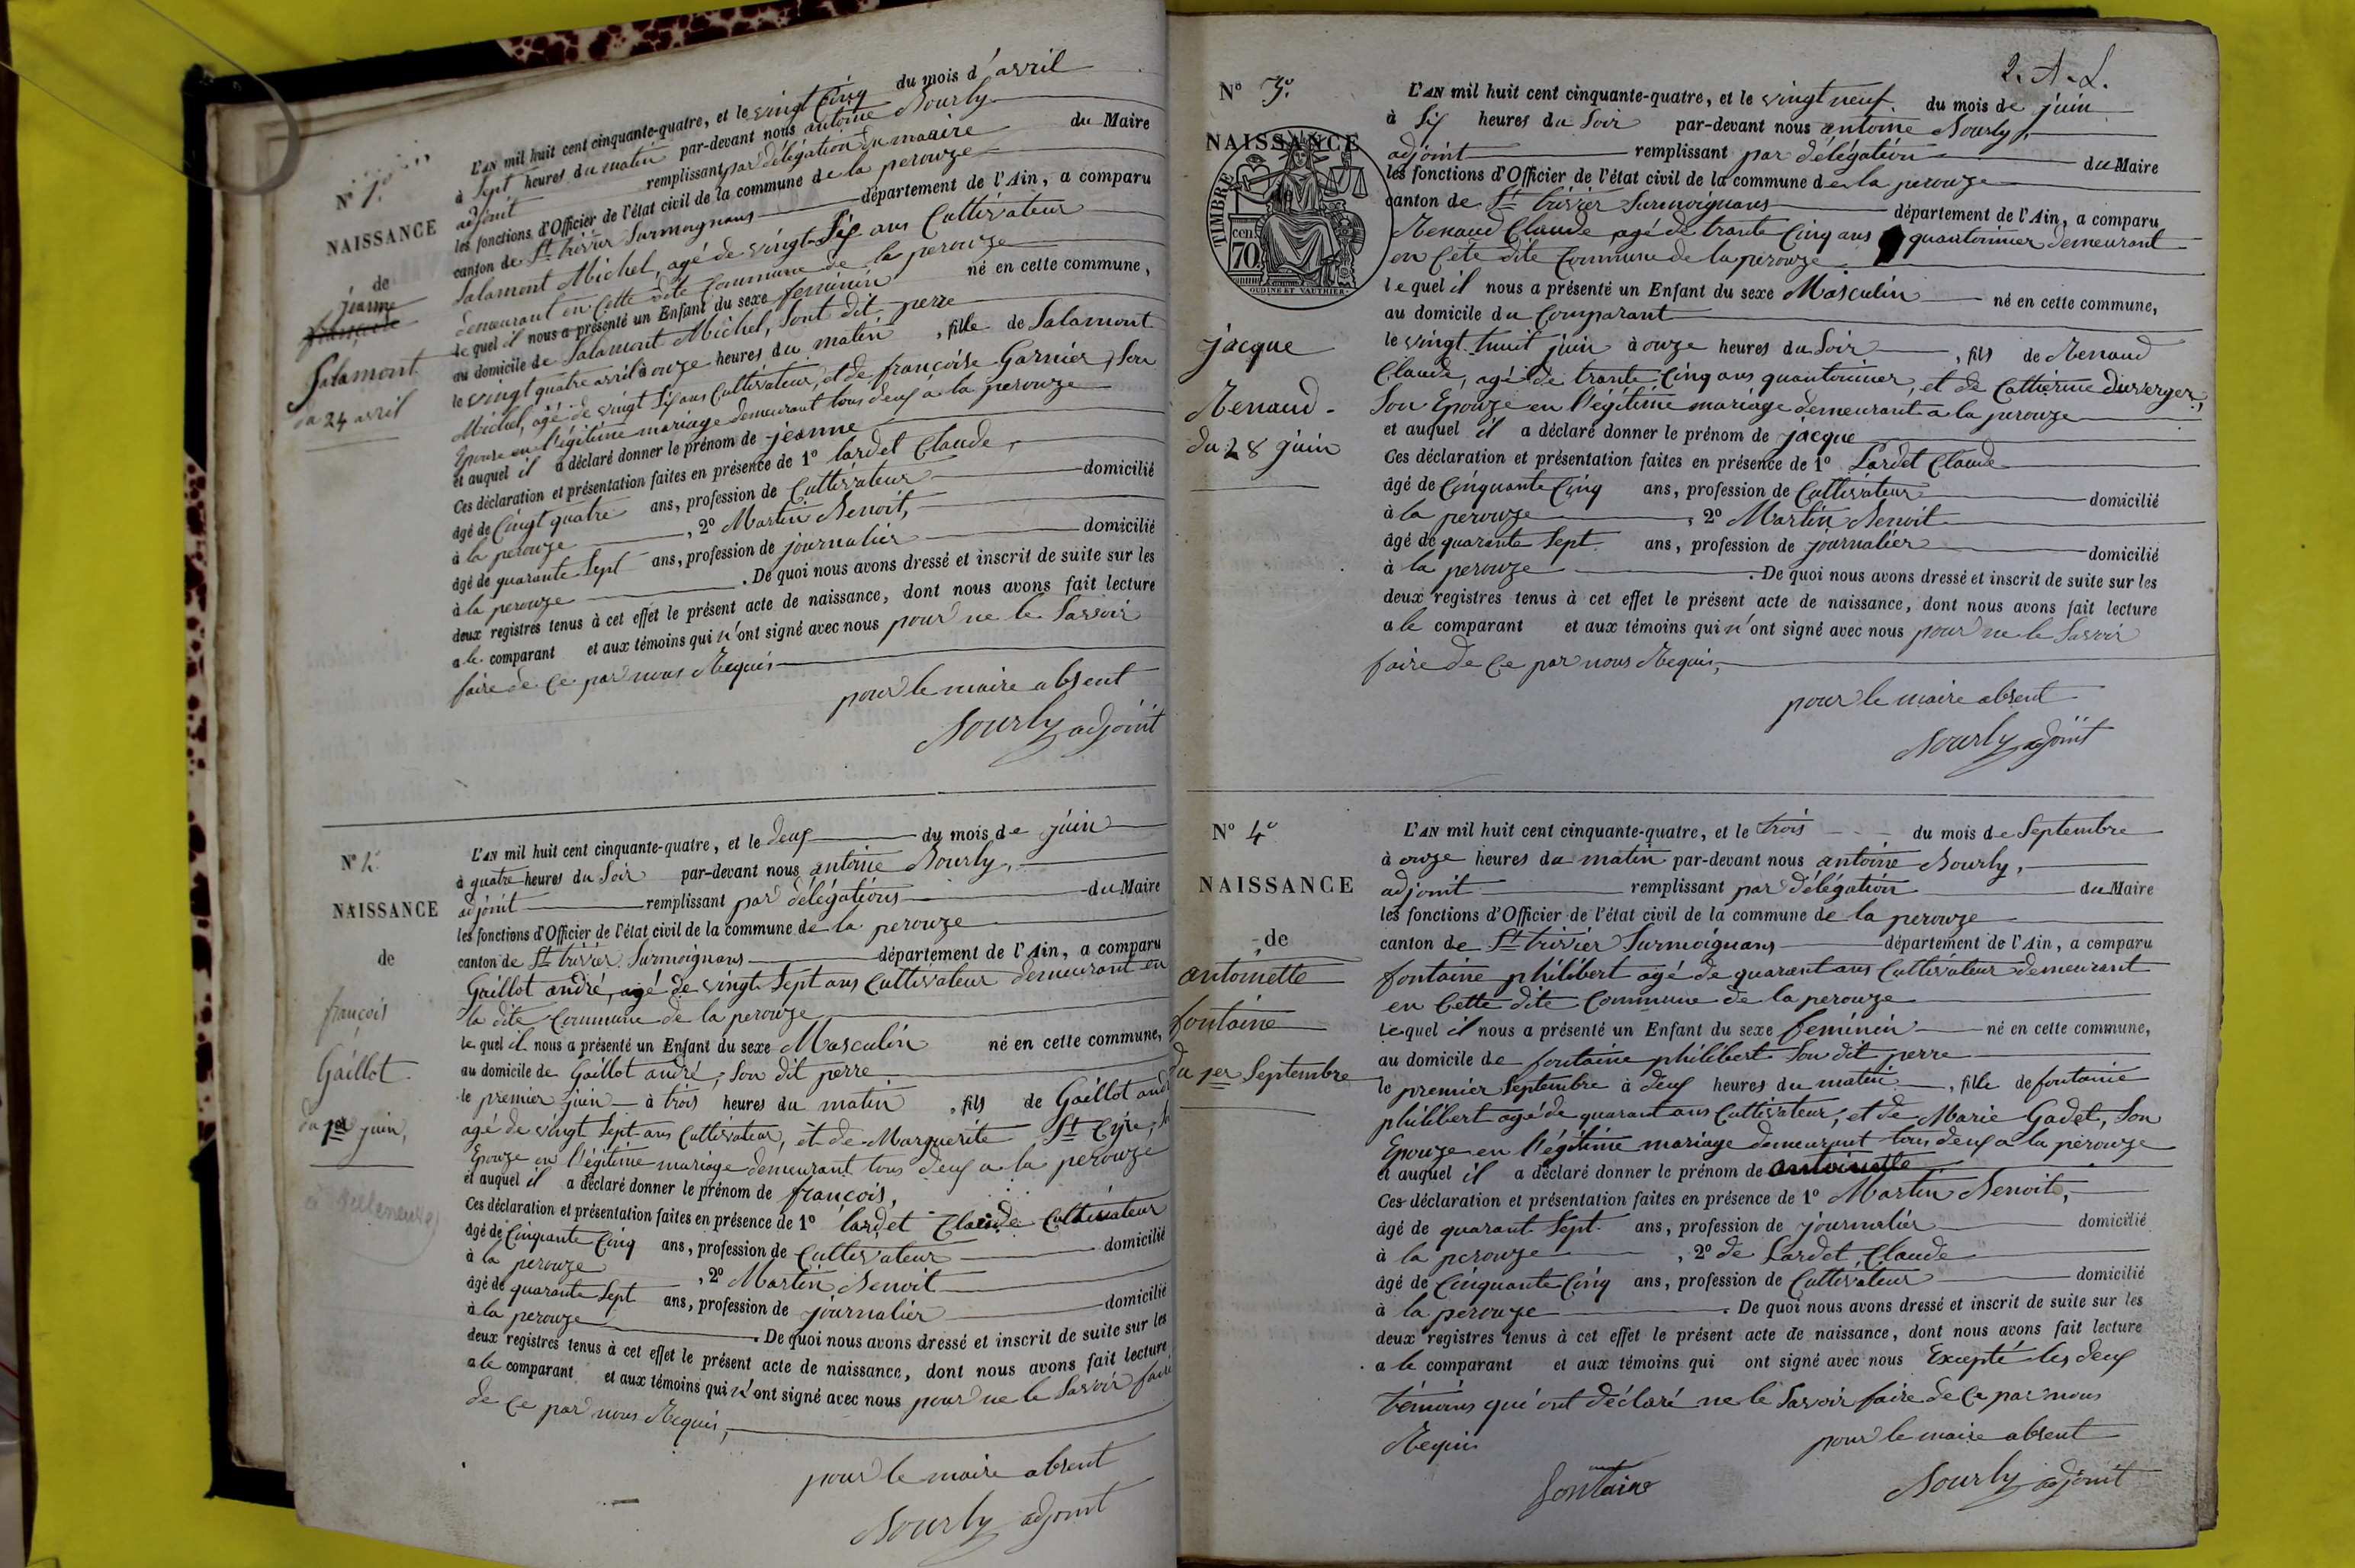 N° 1°
NAISSANCE
de
jeanne
françoise
Salamont
du 24 avril
L'AN mil huit cent cinquante-quatre, et le vingt Cinq du mois d'avril
à Sept heures du matin par-devant nous antoine Nourly
adjoint remplissant par délégation du maaire du Maire
les fonctions d'Officier de l'état civil de la commune de la perouze
canton de St trivier Surmoignans département de l'Ain, a comparu
Salamont Michel, agé de vingt-Six ans Cultivateur
demeurant en Cette dite Commune de la perouze
lequel il nous a présenté un Enfant du sexe feminin né en cette commune,
au domicile de Salamont Michel, Sont dit perre
le vingt quatre avril à onze heures du matin, fille de Salamont
Michel, agé de vingt Six ans Cultivateur, et de françoise Garnier, Son
Epouse en l'égitime mariage demeurant tous deux à la perouze
et auquel il a déclaré donner le prénom de jeanne
Ces déclaration et présentation faites en présence de 1° lardet Claude,
âgé de Cingt quatre ans, profession de Cultivateur domicilié
à la perouze, 2° Martin Benoit,
âgé de quarante Sept ans, profession de journalier domicilié
à la perouze. De quoi nous avons dressé et inscrit de suite sur les
deux registres tenus à cet effet le présent acte de naissance, dont nous avons fait lecture
a le comparant et aux témoins qui n'ont signé avec nous pour ne le Savoir
faire de Ce par nous Requis
pour le maire absent
Nourly adjoint
N° 2°
NAISSANCE
de
françois
Gaillot
du 1er juin,
L'AN mil huit cent cinquante-quatre, et le deux du mois de juin
à quatre heures du Soir par-devant nous antoine Nourly,
adjoint remplissant par délégations du Maire
les fonctions d'Officier de l'état civil de la commune de la perouze
canton de St trivier Surmoignans département de l'Ain, a comparu
Gaillot andré, agé de vingt Sept ans Cultivateur demeurant en
la dite Commune de la perouze
lequel il nous a présenté un Enfant du sexe Masculin né en cette commune,
au domicile de Gaillot andré, Son dit perre
le premier juin à trois heures du matin, fils de Gaillot andré
agé de vingt Sept ans Cultivateur, et de Marguerite St Cyre,
Epouze en l'égitime mariage demeurant tous deux a la perouze
et auquel il a déclaré donner le prénom de françois,
Ces déclaration et présentation faites en présence de 1° lardet Claude Cultivateur
âgé de Cinquante Cinq ans, profession de Cultivateur domicilié
à la perouze, 2° Martin Benoit
âgé de quarante Sept ans, profession de journalier domicilié
à la perouze. De quoi nous avons dressé et inscrit de suite sur les
deux registres tenus à cet effet le présent acte de naissance, dont nous avons fait lecture
a le comparant et aux témoins qui n'ont signé avec nous pour ne le Savoir faire
de Ce par nous Requis,
pour le maire absent
Nourly adjoint
2. A. L.
N° 3°
NAISSANCE
TIMBRE
cen.
70
OUDINE ET VAUTHIER
jacque
Renaud
du 28 juin
L'AN mil huit cent cinquante-quatre, et le vingt neuf du mois de juin
à Six heures du Soir par-devant nous antoine Nourly,
adjoint remplissant par délégation du Maire
les fonctions d'Officier de l'état civil de la commune de la perouze
canton de St trivier Surmoignans département de l'Ain, a comparu
Renaud Claude, agé de trante Cinq ans quantonnier demeurant
en Cete dite Commune de la perouze
lequel il nous a présenté un Enfant du sexe Masculin né en cette commune,
au domicile du Comparant
le vingt huit juin à onze heures du Soir, fils de Renaud
Claude, agé de trante Cinq ans quantonnier, et de Cattherine duverger,
Son Epouze en l'égitime mariage demeurant à la perouze
et auquel il a déclaré donner le prénom de jacque
Ces déclaration et présentation faites en présence de 1° Lardet Claude
âgé de Cinquante Cinq ans, profession de Cultivateur domicilié
à la perouze, 2° Martin Benoit
âgé de quarante Sept ans, profession de journalier domicilié
à la perouze. De quoi nous avons dressé et inscrit de suite sur les
deux registres tenus à cet effet le présent acte de naissance, dont nous avons fait lecture
a le comparant et aux témoins qui n'ont signé avec nous pour ne le Savoir
faire de Ce par nous Requis,
pour le maire absent
Nourly adjoint
N° 4°
NAISSANCE
de
antoinette
fontaine
du 1er Septembre
L'AN mil huit cent cinquante-quatre, et le trois du mois de Septembre
à onze heures du matin par-devant nous antoine Nourly,
adjoint remplissant par délégation du Maire
les fonctions d'Officier de l'état civil de la commune de la perouze
canton de St trivier Surmoignans département de l'Ain, a comparu
fontaine philibert agé de quarant ans Cultivateur demeurant
en Cette dite Commune de la perouze
lequel il nous a présenté un Enfant du sexe feminin né en cette commune,
au domicile de fontaine philibert Son dit perre
le premier Septembre à deux heures du matin, fille de fontaine
philibert agé de quarant ans Cultivateur, et de Marie Gadet, Son
Epouze en l'égitime mariage demeurant tous deux a la perouze
et auquel il a déclaré donner le prénom de antoinette
Ces déclaration et présentation faites en présence de 1° Martin Benoit,
âgé de quarant Sept ans, profession de journalier domicilié
à la perouze, 2° de Lardet Claude
âgé de Cinquante Cinq ans, profession de Cultivateur domicilié
à la perouze. De quoi nous avons dressé et inscrit de suite sur les
deux registres tenus à cet effet le présent acte de naissance, dont nous avons fait lecture
a le comparant et aux témoins qui ont signé avec nous Excepté les deux
témoins qui ont déclaré ne le Savoir faire de Ce par nous
Requis
pour le maire absent
fontaine
Nourly adjoint